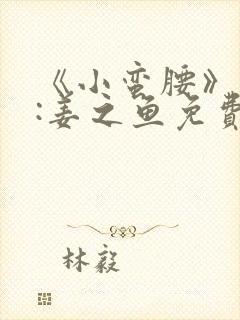 《小蛮腰》
:姜之鱼免費
林毅